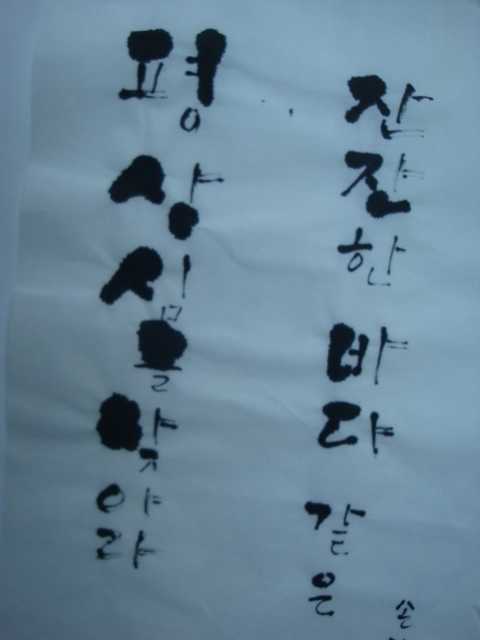 손
잔잔한 바다 같은
평상심을 찾아라